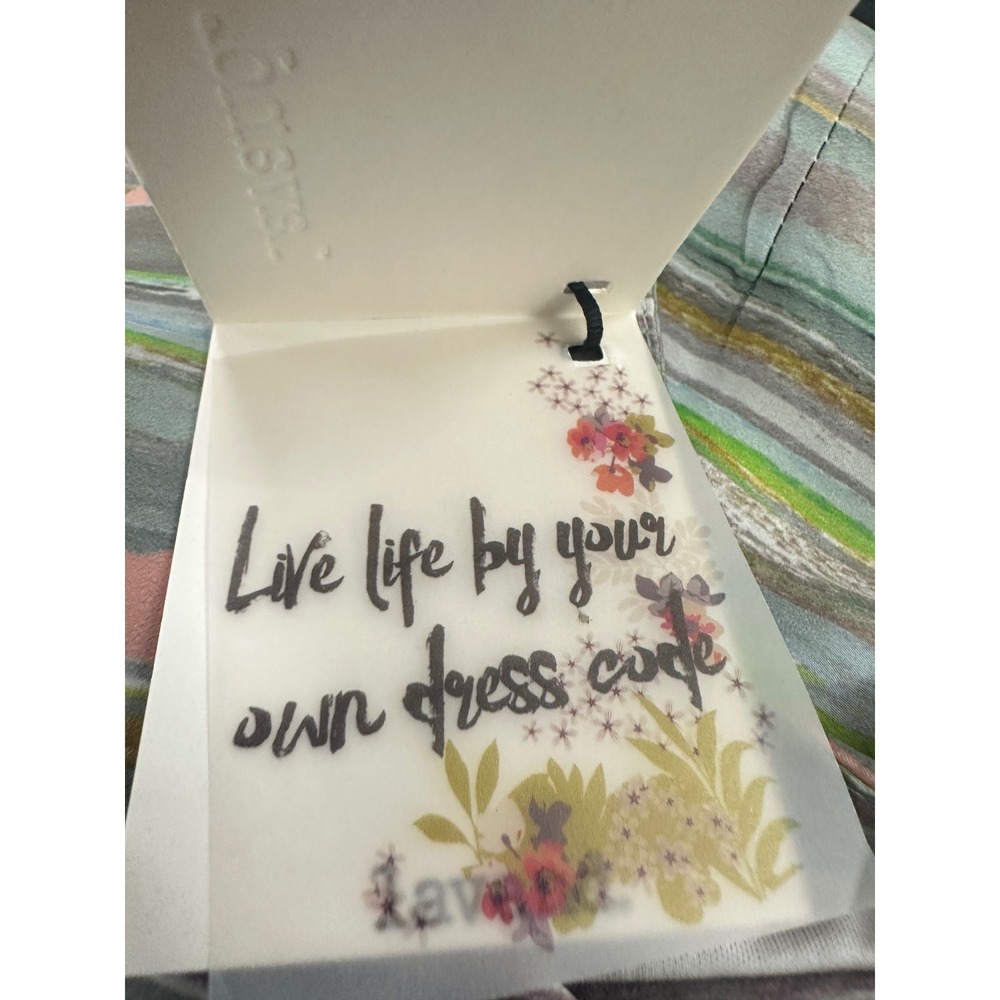 Live life by your
own dress code